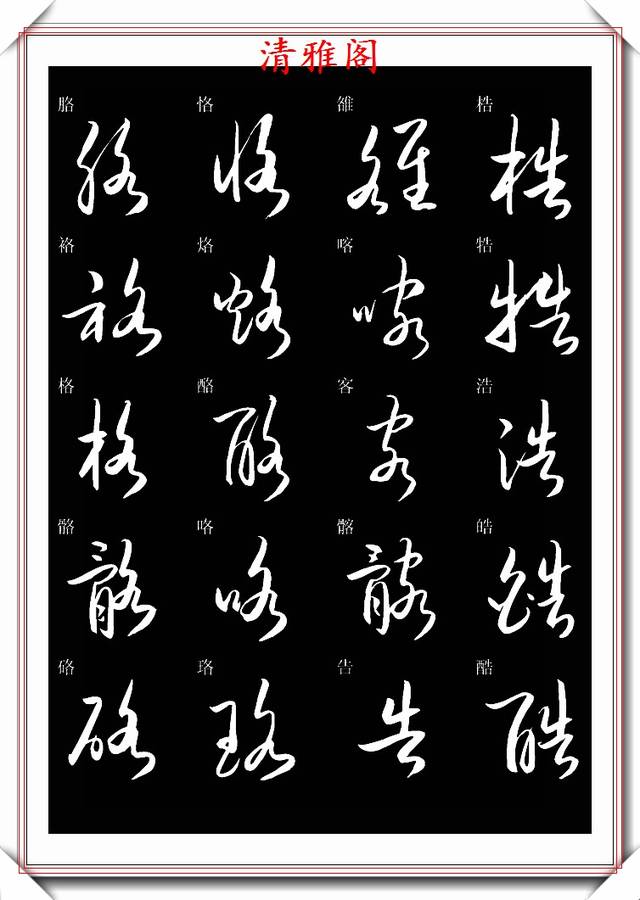 清雅阁
胳 恪 雒 梏
袼 烙 喀 牿
格 酪 客 浩
骼 咯 髂 皓
硌 珞 告 酷